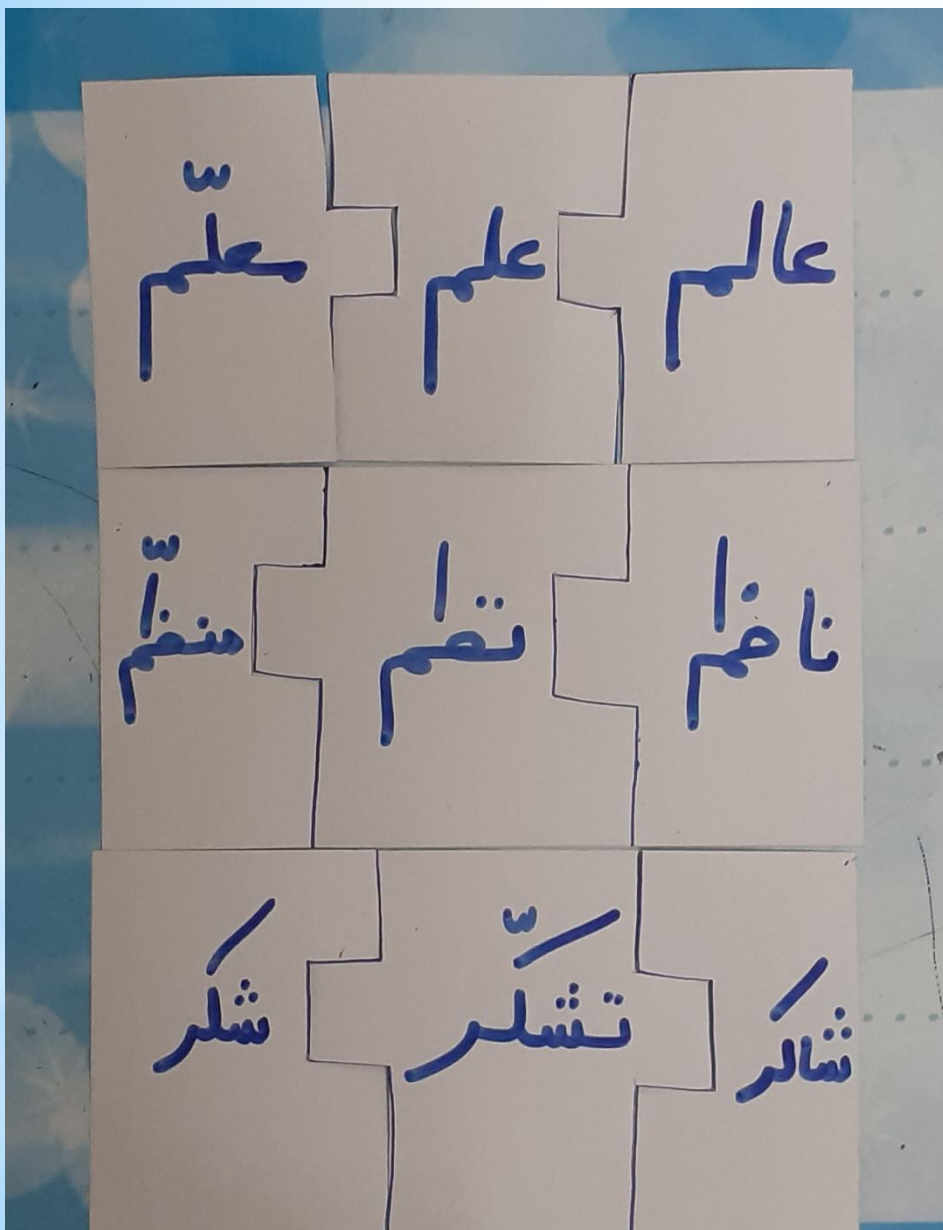 عالم علم معلّم
ناظم نظم منظّم
شاکر تشکّر شکر